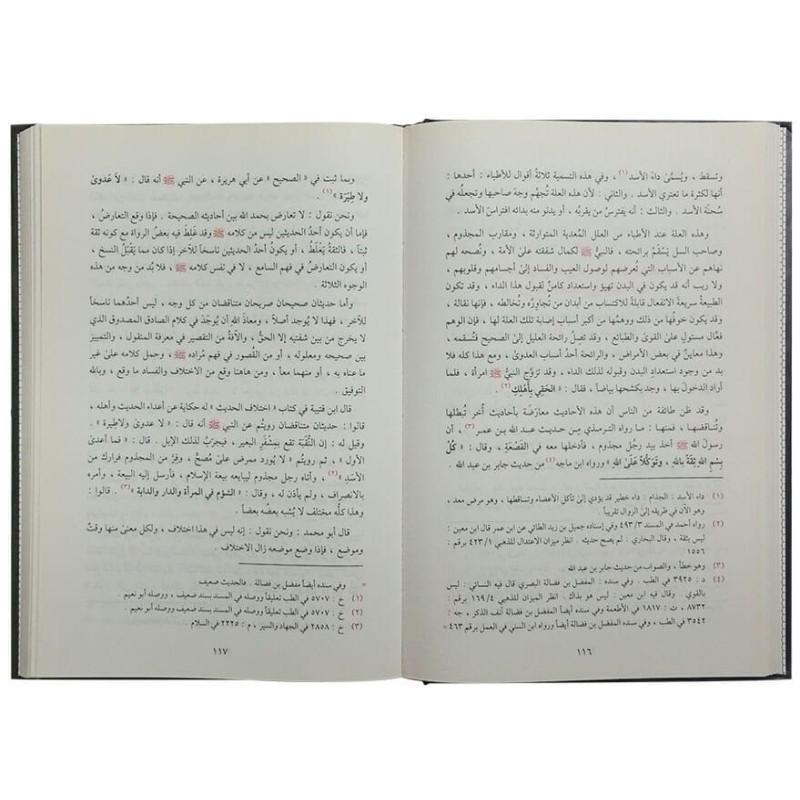 وتسقط ، ويُسمَّى داءَ الأسد (١) ، وفي هذه التسمية ثلاثةُ أقوال للأطباء : أحدها :
أنها لكثرة ما تعتري الأسد . والثاني : لأن هذه العلة تُجهِّم وجهَ صاحبها وتجعلُه في
سُحنَة الأسد . والثالث : أنه يفترسُ من يقربُه ، أو يدنو منه بدائه افتراسَ الأسد .
وهذه العلة عند الأطباء من العلل المُعدية المتوارثة ، ومقارب المجذوم ،
وصاحب السل يَسْقَمُ برائحته ، فالنبيُّ ﷺ لكمال شفقته على الأمة ، ونُصحه لهم
نهاهم عن الأسباب التي تُعرضهم لوصول العيب والفساد إلى أجسامهم وقلوبهم ،
ولا ريب أنه قد يكون في البدن تهيؤ واستعداد كامنٌ لقبول هذا الداء ، وقد تكون
الطبيعةُ سريعةَ الانفعال قابلةً للاكتساب من أبدان من تُجاوِرُه وتُخالطه ، فإنها نقالة ،
وقد يكون خوفُها من ذلك ووهمُها من أكبر أسباب إصابة تلك العلة لها ، فإن الوهم
فعَّال مستولٍ على القوى والطبائع ، وقد تصِلُ رائحة العليل إلى الصحيح فتُسقمه ،
وهذا معاينٌ في بعض الأمراض ، والرائحة أحدُ أسباب العدوى ، ومع هذا كله فلا
بد من وجود استعداد البدن وقبوله لذلك الداء ، وقد تزوَّج النبيُّ ﷺ امرأة ، فلما
أراد الدخولَ بها ، وجد بكشحها بياضاً ، فقال : « الحَقِي بأَهْلِكِ » (٢) .
وقد ظن طائفة من الناس أن هذه الأحاديث معارَضة بأحاديثَ أُخر تُبطلها
وتُناقضها ، فمنها : ما رواه الترمذي من حديث عبد الله بن عمر (٣) ، أن
رسولَ الله ﷺ أخذ بيد رجُل مجذوم ، فأدخلها معه في القَصْعَةِ ، وقال : « كُلْ
بِسْمِ اللهِ ثِقَةً باللهِ ، وتَوَكُّلاً عَلَى اللهِ » ورواه ابن ماجه (٤) من حديث جابر بن عبد الله .
(١) داء الأسد : الجذام : داء خطير قد يؤدي إلى تآكل الأعضاء وتساقطها ، وهو مرض معد ،
وهو الآن في طريقه إلى الزوال تقريباً .
(٢) رواه أحمد في المسند ٤٩٣/٣ وفي إسناده جميل بن زيد الطائي عن ابن عمر قال ابن معين :
ليس بثقة . وقال البخاري : لم يصح حديثه . انظر ميزان الاعتدال للذهبي ٤٢٣/١ برقم :
١٥٥٦
(٣) وهو خطأ ، والصواب من حديث جابر بن عبد الله
(٤) د : ٣٩٢٥ في الطب . وفي سنده : المفضل بن فضالة البصري قال فيه النسائي : ليس
بالقوي . وقال فيه ابن معين : ليس هو بذاك . انظر الميزان للذهبي ١٦٩/٤ برقم :
٨٧٣٢ ، ت : ١٨١٧ في الأطعمة وفي سنده أيضاً المفضل بن فضالة آنف الذكر ، جه :
٣٥٤٢ في الطب ، وفي سنده المفضل بن فضالة أيضاً ورواه ابن السني في العمل برقم ٤٦٣ =
١١٦
وبما ثبت في « الصحيح » عن أبي هريرة ، عن النبي ﷺ أنه قال : « لاَ عَدوىٰ
ولا طِيَرَة » (١) .
ونحن نقول : لا تعارض بحمد الله بين أحاديثه الصحيحة . فإذا وقع التعارضُ ،
فإما أن يكون أحدُ الحديثين ليس من كلامه ﷺ وقد غَلِطَ فيه بعض الرواة مع كونه ثقة
ثبتاً ، فالثقةُ يَغْلَطُ ، أو يكونُ أحدُ الحديثين ناسخاً للآخر إذا كان مما يَقْبَلُ النسخ ،
أو يكون التعارضُ في فهم السامع ، لا في نفس كلامه ﷺ ، فلا بُد من وجه من هذه
الوجوه الثلاثة .
وأما حديثان صحيحان صريحان متناقضان من كل وجه ، ليس أحدُهما ناسخاً
للآخر ، فهذا لا يُوجد أصلاً ، ومعاذَ اللهِ أن يُوجَدَ في كلام الصادق المصدوق الذي
لا يخرج من بين شفتيه إلا الحقُّ ، والآفةُ من التقصير في معرفة المنقول ، والتمييز
بين صحيحه ومعلوله ، أو من القُصور في فهم مُراده ﷺ ، وحمل كلامه على غير
ما عناه به ، أو منهما معاً . ومن هاهنا وقع من الاختلاف والفساد ما وقع ، وبالله
التوفيق .
قال ابن قتيبة في كتاب « اختلاف الحديث » له حكاية عن أعداء الحديث وأهله ،
قالوا : حديثان متناقضان رويتم عن النبي ﷺ أنه قال : « لا عدوىٰ ولاطِيَرة » .
وقيل له : إن النُّقْبَة تقع بمِشْفَرِ البعير ، فيجرَبُ لذلك الإبل . قال : « فما أعدىٰ
الأول » ، ثم رويتم « لا يُورد ممرض على مُصحٍّ ، وفِرَّ من المجذوم فرارك من
الأسَدِ » (٢) ، وأتاه رجل مجذوم ليبايعه بيعة الإسلام ، فأرسل إليه البيعة ، وأمره
بالانصراف ، ولم يأذن له ، وقال : « الشؤم في المرأة والدار والدابة » (٣) . قالوا :
وهذا كلُّه مختلف لا يُشبه بعضُه بعضاً .
قال أبو محمد : ونحن نقول : إنه ليس في هذا اختلاف ، ولكل معنىٰ منها وقتٌ
وموضع ، فإذا وضع موضعه زال الاختلاف .
= وفي سنده أيضاً مفضل بن فضالة . فالحديث ضعيف
(١) خ : ٥٧٠٧ في الطب تعليقاً ووصله في المسند بسند ضعيف ، ووصله أبو نعيم .
(٢) خ : ٥٧٠٧ في الطب تعليقاً ووصله في المسند بسند ضعيف ووصله أبو نعيم .
(٣) خ : ٢٨٥٨ في الجهاد والسير ، م : ٢٢٢٥ في السلام .
١١٧